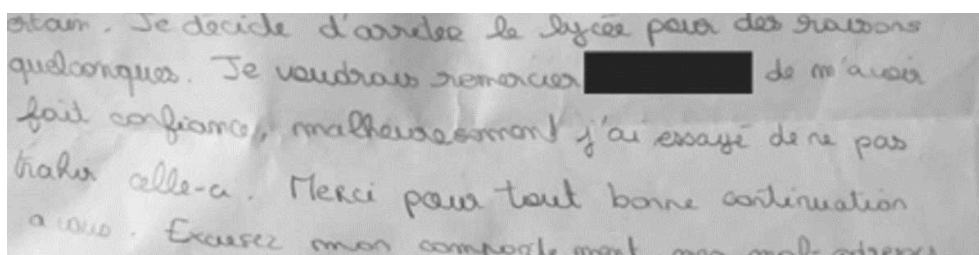 Je decide d'arreter le lycée pour des raisons
quelconques. Je voudrais remercier de m'avoir
fait confiance, malheuresement j'ai essayé de ne pas
trahir celle-ci. Merci pour tout bonne continuation
a vous. Excusez mon comportement mes